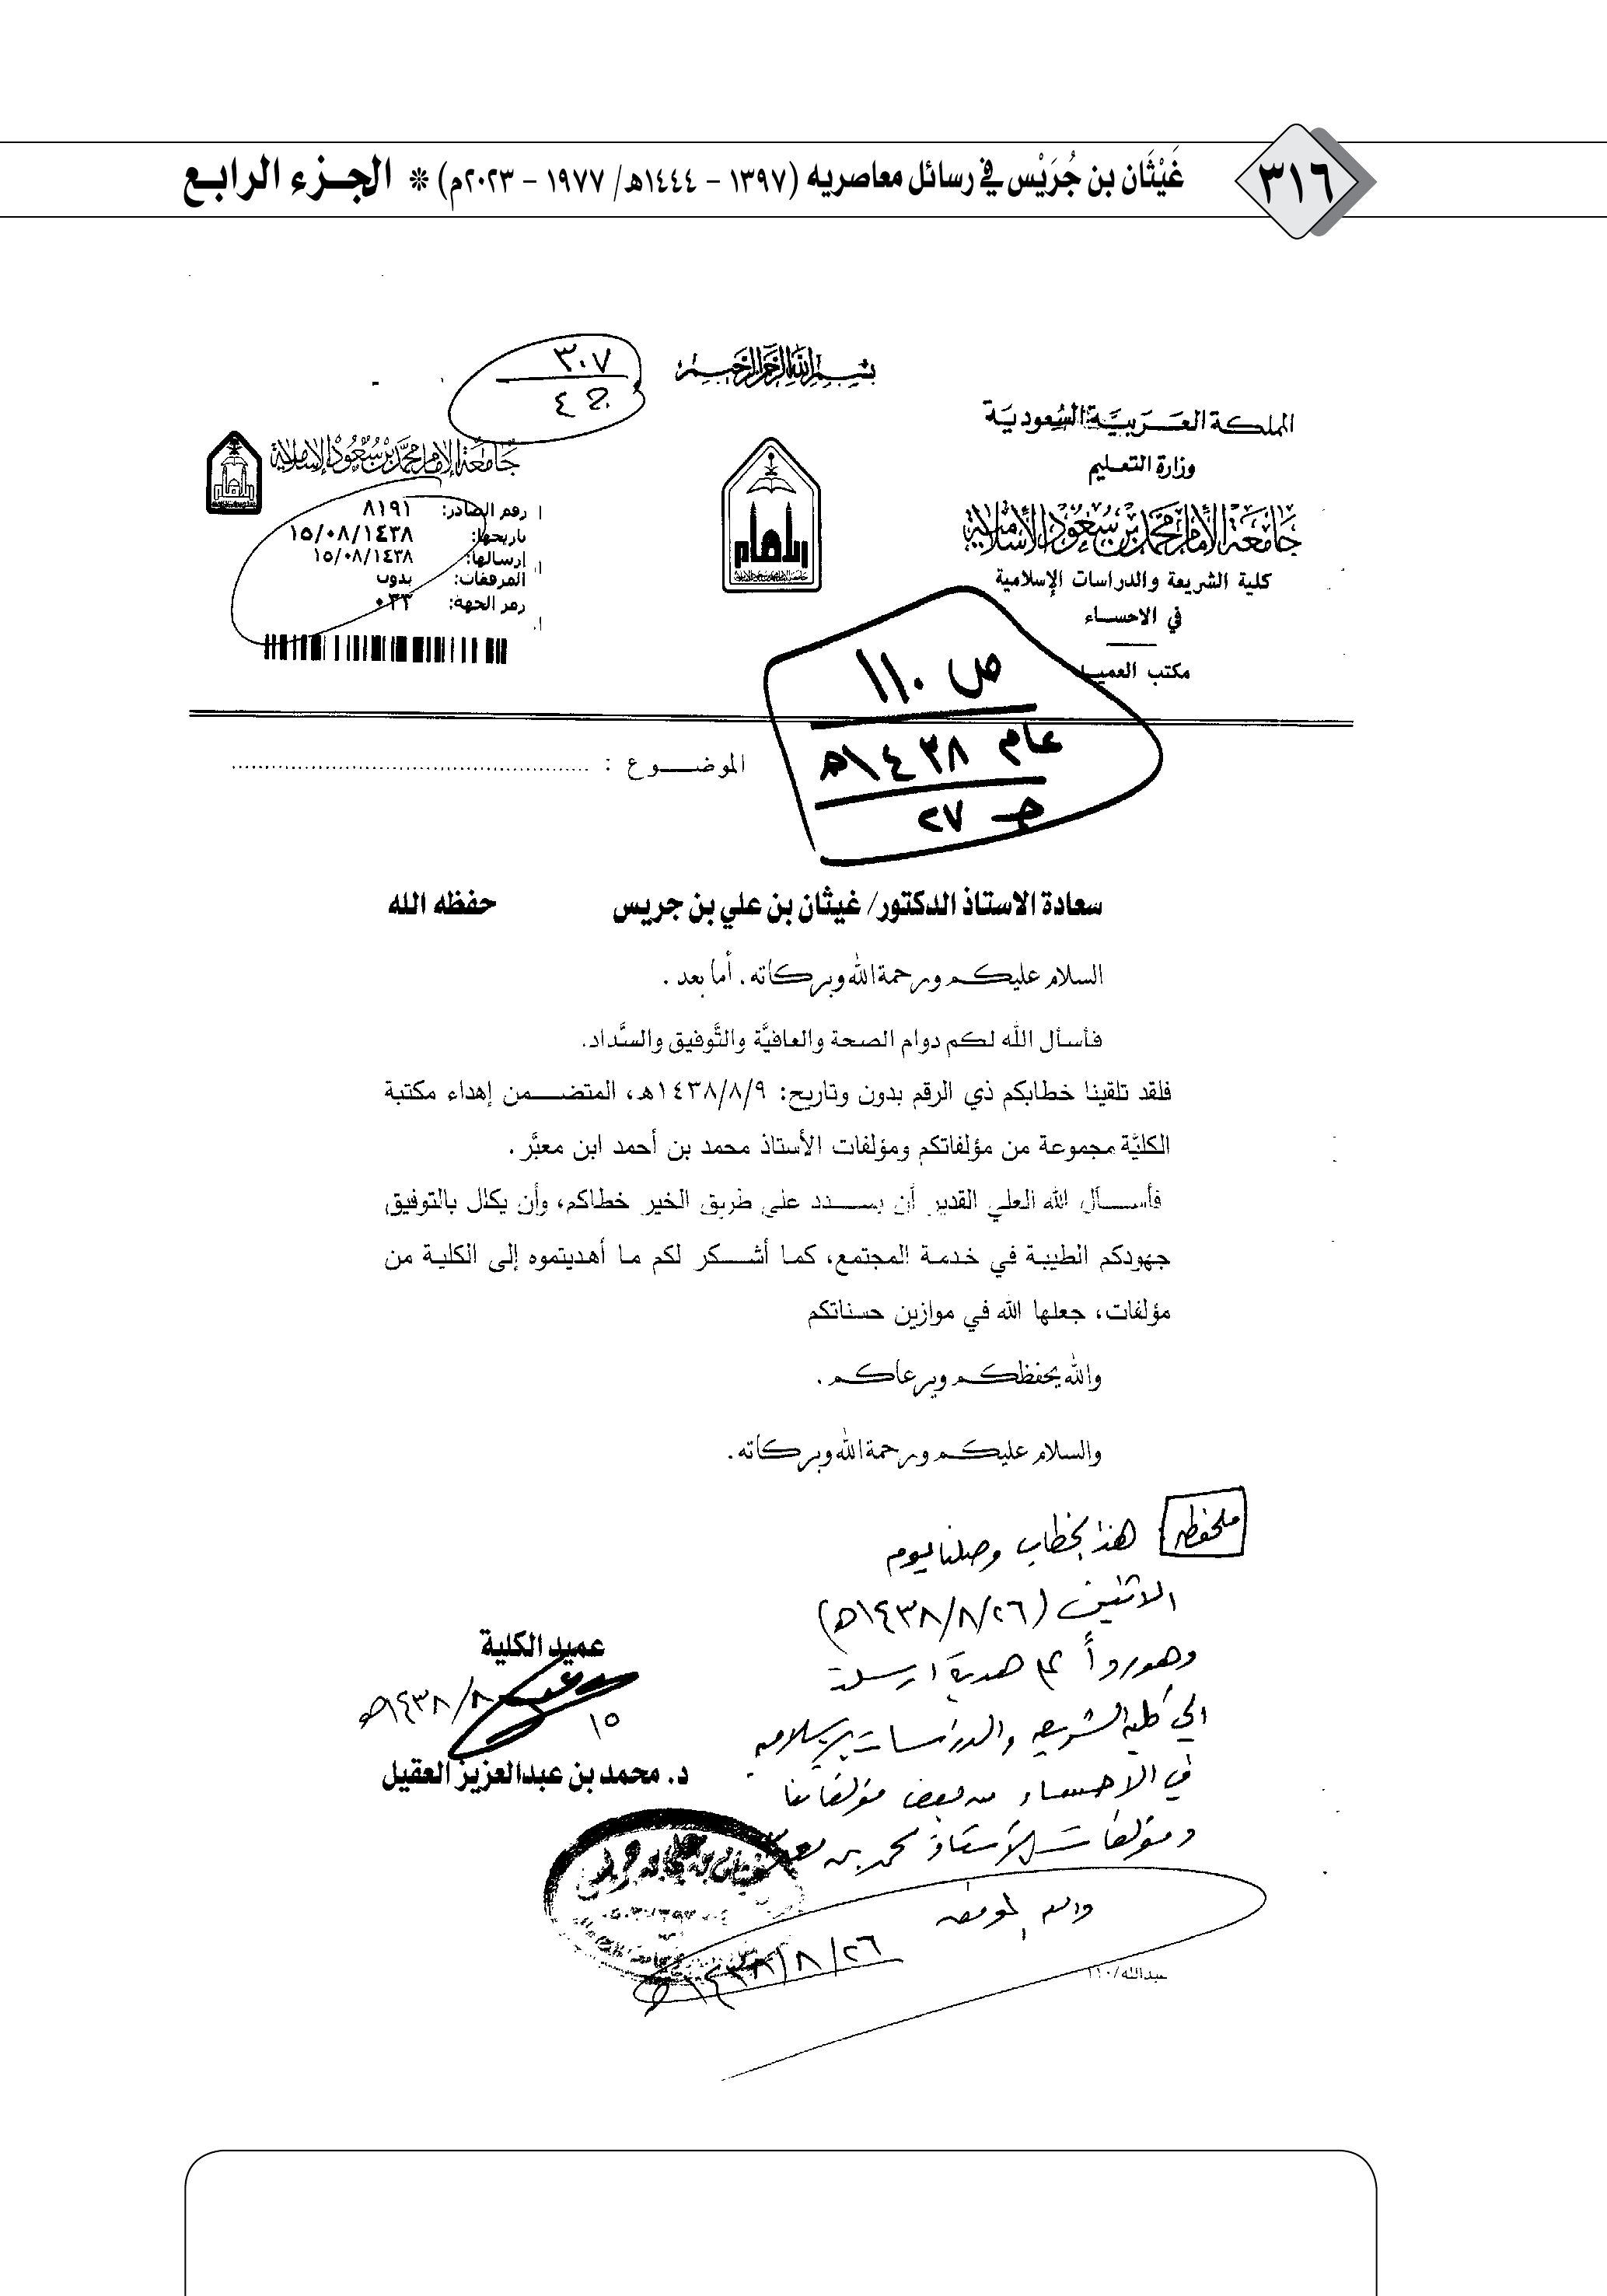 ٣١٦
غَيْثَان بن جُرَيْس في رسائل معاصريه (١٣٩٧ - ١٤٤٤هـ/ ١٩٧٧ - ٢٠٢٣م) * الجزء الرابع
٣٠٧
ج ٤
بسم الله الرحمن الرحيم
المملكة العربية السعودية
وزارة التعليم
جامعة الإمام محمد بن سعود الإسلامية
كلية الشريعة والدراسات الإسلامية
في الاحساء
مكتب العميد
جامعة الإمام محمد بن سعود الإسلامية
رقم الصادر: ٨١٩١
تاريخها: ١٥/٠٨/١٤٣٨
إرسالها: ١٥/٠٨/١٤٣٨
المرفقات: بدون
رمز الجهة: ٠٣٣
ص ١١٠
عام ١٤٣٨هـ
جـ ٢٧
الموضـــوع :
سعادة الاستاذ الدكتور/ غيثان بن علي بن جريس حفظه الله
السلام عليكم ورحمة الله وبركاته. أما بعد .
فأسأل الله لكم دوام الصحة والعافيَّة والتَّوفيق والسَّداد.
فلقد تلقينا خطابكم ذي الرقم بدون وتاريح: ١٤٣٨/٨/٩هـ، المتضمن إهداء مكتبة
الكليَّة مجموعة من مؤلفاتكم ومؤلفات الأستاذ محمد بن أحمد ابن معبَّر .
فأســأل الله العلي القدير أن يســدد على طريق الخير خطاكم، وأن يكلل بالتوفيق
جهودكم الطيبة في خدمة المجتمع، كما أشـكر لكم ما أهديتموه إلى الكلية من
مؤلفات، جعلها الله في موازين حسناتكم
والله يحفظكم ويرعاكم .
والسلام عليكم ورحمة الله وبركاته.
ملحوظة هذا الخطاب وصلنا يوم
الاثنين (١٤٣٨/٨/٢٦هـ)
وهو رداً على هدية ارسلت
الى كلية الشريعة والدراسات الإسلامية
في الاحساء من بعض مؤلفاتنا
ومؤلفات الأستاذ محمد بن معبر
والله الموفق
١٤٣٨/٨/٢٦هـ
عميد الكلية
١٤٣٨/٨/١٥هـ
د. محمد بن عبدالعزيز العقيل
عبدالله/١١٠